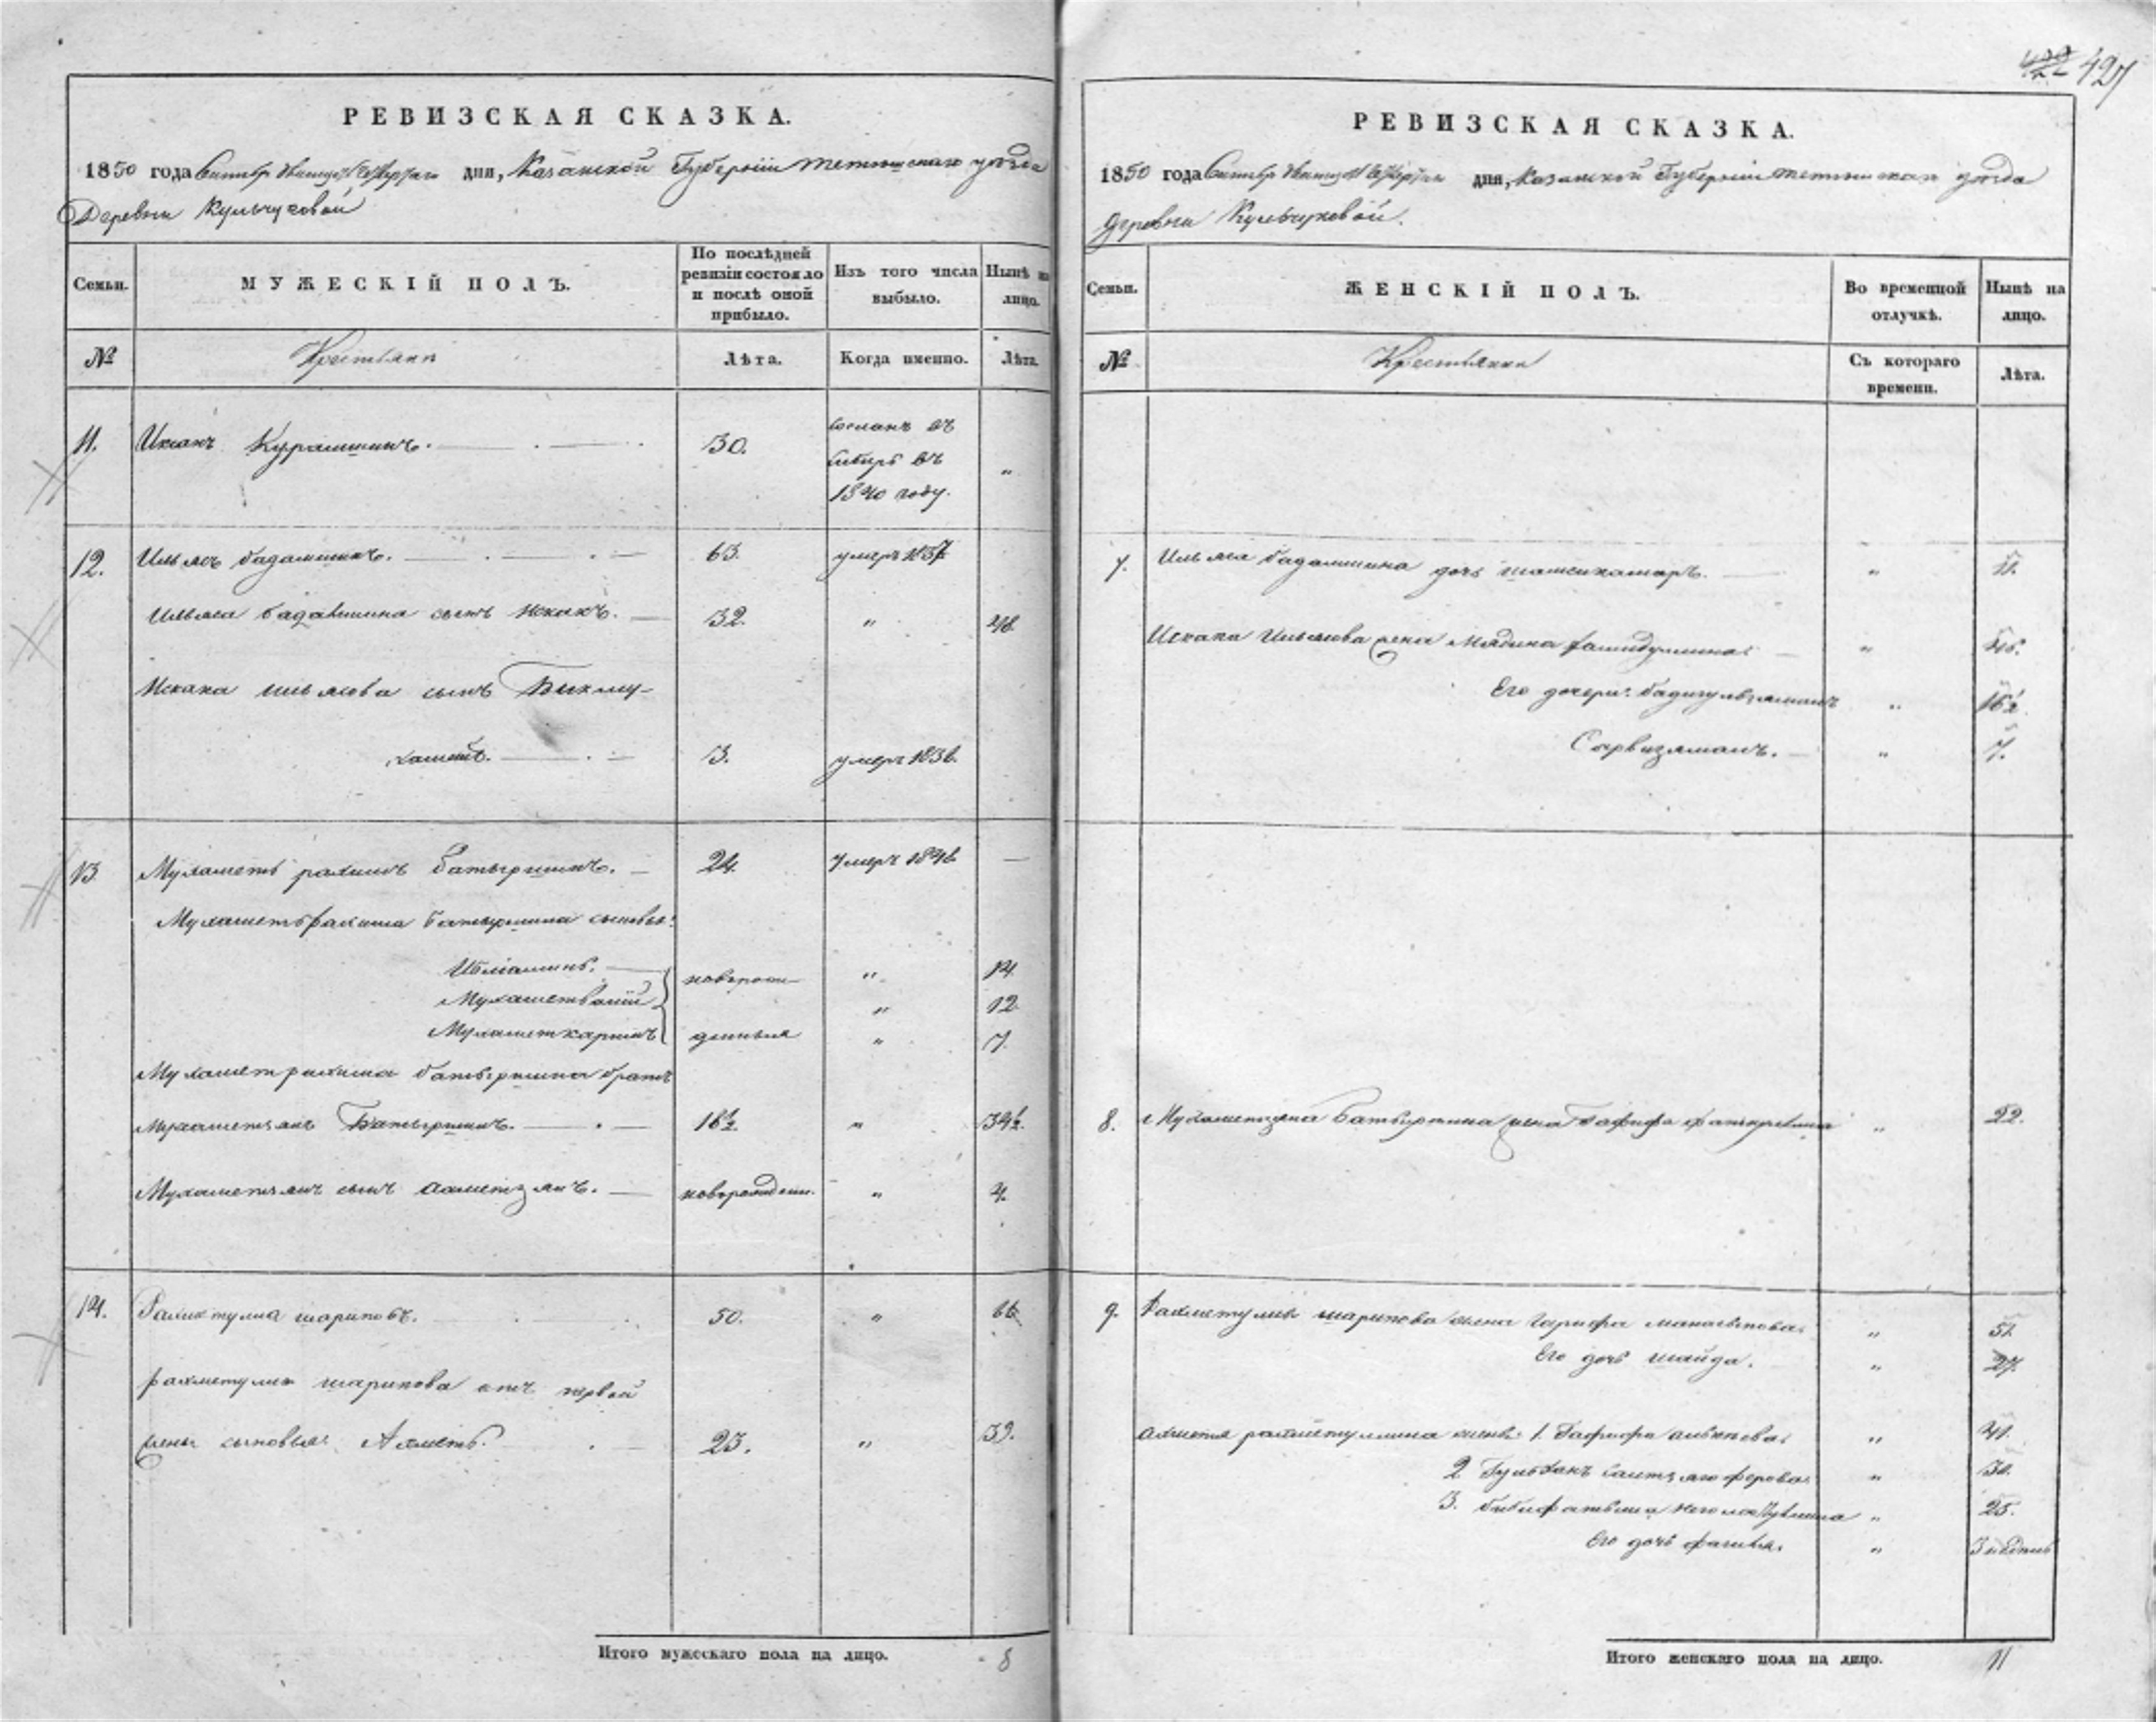 427
РЕВИЗСКАЯ СКАЗКА.
1850 года дня, Казанской Губерніи Тетюшскаго уѣзда
Деревни Кульчуковой
Семьи. МУЖЕСКІЙ ПОЛЪ. По послѣдней ревизіи состояло и послѣ оной прибыло. Изъ того числа выбыло. Нынѣ на лицо.
№ Крестьяне Лѣта. Когда именно. Лѣта.
11. Курамшинъ. 30. сосланъ въ
сибирь въ "
1840 году.
12. Ильясъ бадамшинъ. 63. умеръ 1837
Ильяса бадамшина сынъ Искакъ. 32. " 48.
Искака ильясова сынъ Бикму-
хаметъ. 3. умеръ 1836.
13. Мухаметь рахимъ Батыршинъ. 24. Умеръ 1846 —
Мухаметьрахима Батыршина сыновья:
новорож- " 14.
Мухаметвалій " 12.
Мухаметкаримъ денныя " 7.
Мухаметрахима батыршина братъ
Мухаметзянъ Батыршинъ. 18½. " 34½.
Мухаметзянъ сынъ Ахметзянъ. новорожден. " 4.
14. Рахметулла шариповъ. 50. " 66.
рахметуллы шарипова отъ первой
жены сыновья: Ахметь. 23. " 39.
Итого мужескаго пола на лицо. 8
РЕВИЗСКАЯ СКАЗКА.
1850 года дня, Казанской Губерніи Тетюшскаго уѣзда
деревни Кульчуковой.
Семьи. ЖЕНСКІЙ ПОЛЪ. Во временной отлучкѣ. Нынѣ на лицо.
№ Крестьянки Съ котораго времени. Лѣта.
7. Ильяса бадамшина дочь шамсикамаръ. "
Искака Ильясова жена Мядина "
Его дочери: бадигульзяманъ " 16½.
Сарвизяманъ. " 7.
8. Мухаметзяна Батыршина жена Гафифа " 22.
9. Рахметуллы шарипова жена Гарифа " 51.
Его дочь шайда. " 27.
ахметя рахметуллина жены: 1. Гафифа " 41.
2 " 30.
3. бибифатыма " 25.
Его дочь " 3 недель
Итого женскаго пола на лицо. 11